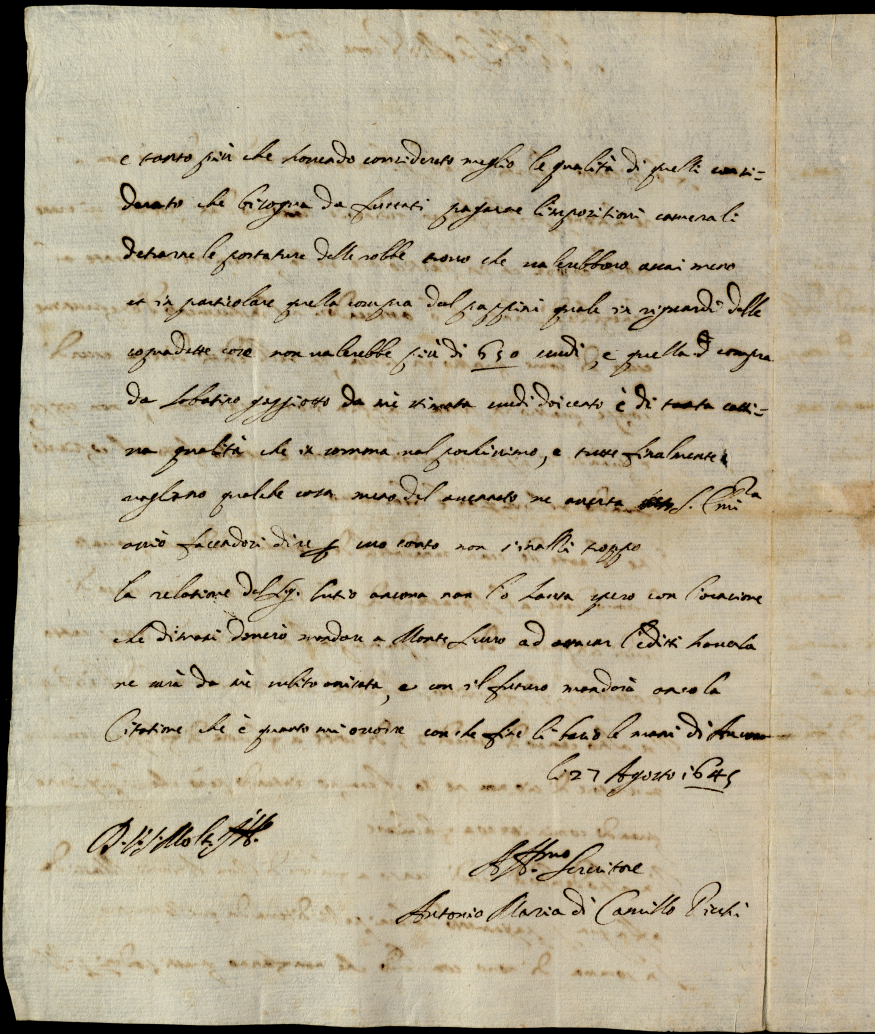 e tanto più che havendo considerato meglio le qualità di quelli consi=
derato che bisogna da pagarne l'impositioni camerali
detrarne le portature delle robbe trovo che valerebbono assai meno
et in particolare quella compra dal pappini quale in riguardo delle
sopradette cose non valerebbe più di 650 scudi, e quella d compra
da da mè stimata scudi doicento è di tanta catti=
va qualità che in somma val pochissimo, e tutte finalmente
vagliano qualche cosa meno del ne S. Emi za
acciò dire suo conto non troppo
la relatione del Sig. Curio ancora non l'ò havuta spero con l'occasione
che dimani doverò mandare a Monte ad l'editti haverla
ne sarà da mè subito aviata, e con il futuro manderà anco la
Citatione che è quanto mi occorre con che fine li bacio le mani di Ancona
li 27 Agosto 1645
D. V. S. Molt Ill.
Aff.mo Servitore
Antonio Maria di Camillo Picchi